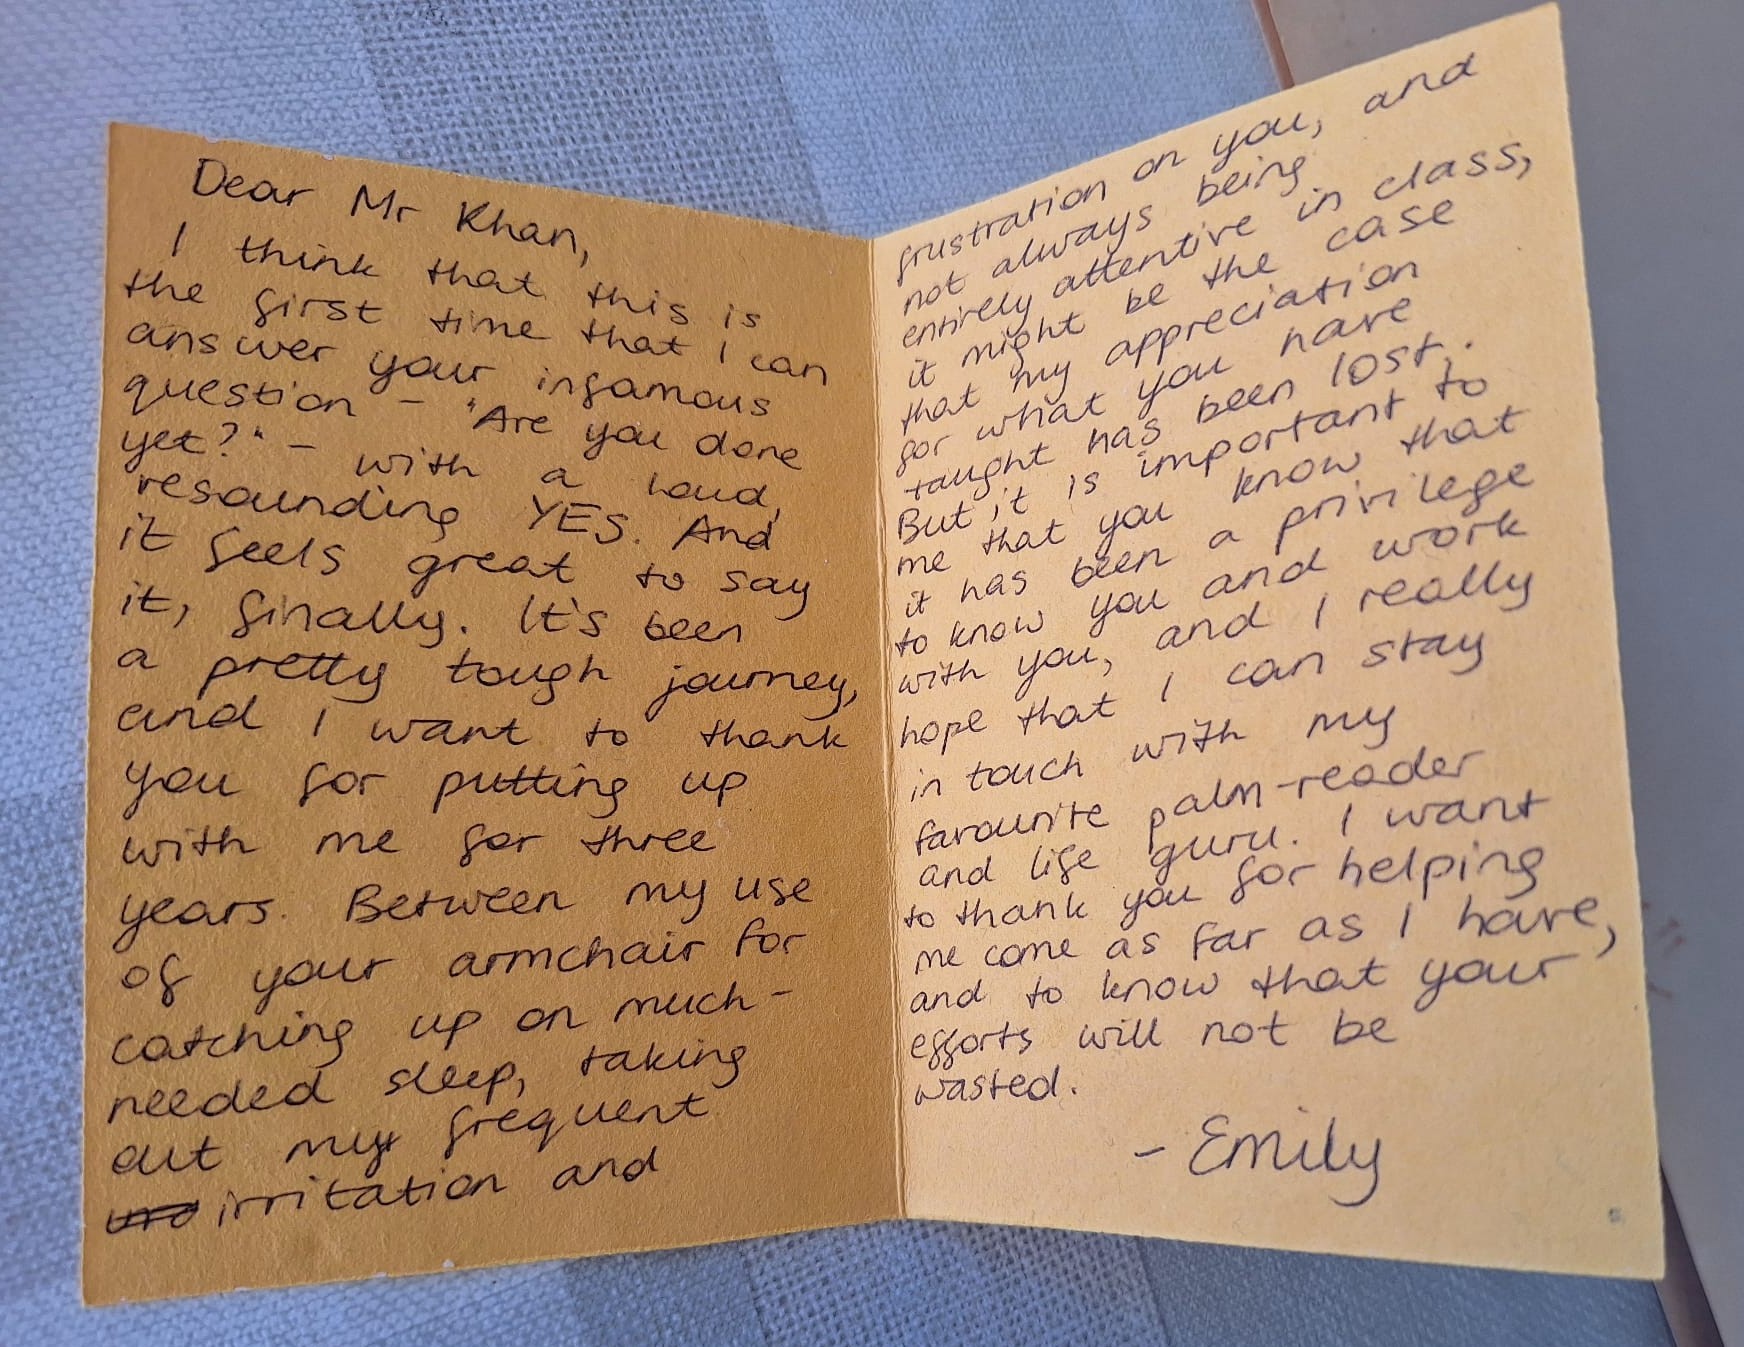 Dear Mr Khan,
I think that this is
the first time that I can
answer your infamous
question - "Are you done
yet?" - with a loud,
resounding YES. And
it feels great to say
it, finally. It's been
a pretty tough journey,
and I want to thank
you for putting up
with me for three
years. Between my use
of your armchair for
catching up on much-
needed sleep, taking
out my frequent
irritation and
frustration on you, and
not always being
entirely attentive in class,
it might be the case
that my appreciation
for what you have
taught has been lost.
But it is important to
me that you know that
it has been a privilege
to know you and work
with you, and I really
hope that I can stay
in touch with my
favourite palm-reader
and life guru. I want
to thank you for helping
me come as far as I have,
and to know that your
efforts will not be
wasted.
- Emily